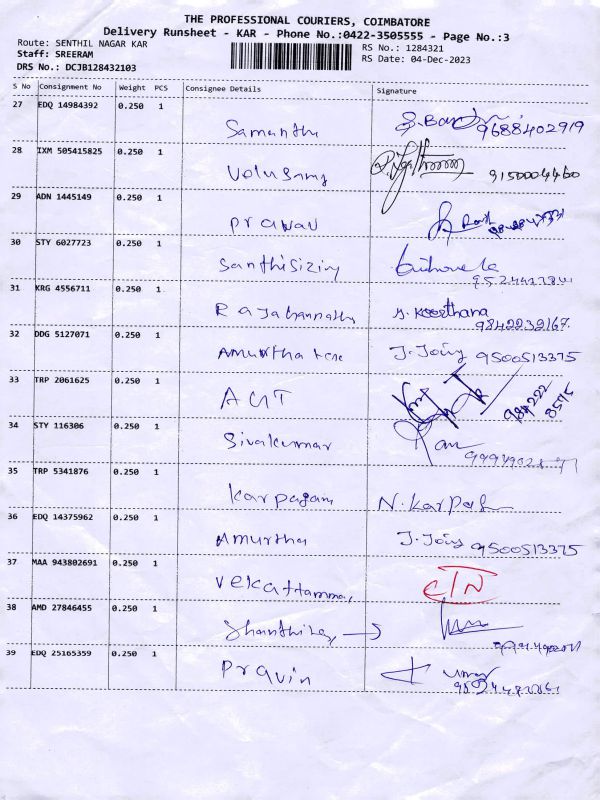 THE PROFESSIONAL COURIERS, COIMBATORE
Delivery Runsheet - KAR - Phone No.:0422-3505555 - Page No.:3
Route: SENTHIL NAGAR KAR
RS No.: 1284321
Staff: SREERAM
RS Date: 04-Dec-2023
DRS No.: DCJB128432103
S No Consignment No Weight PCS Consignee Details Signature
27 EDQ 14984392 0.250 1
Samantha 9688402919
28 IXM 505415825 0.250 1
Velusamy 9150004460
29 ADN 1445149 0.250 1
Pravan
30 STY 6027723 0.250 1
31 KRG 4556711 0.250 1
Rajahannatha S. Keerthana
9842232167
32 DDG 5127071 0.250 1
Amurtha J. Joiy 9500513375
33 TRP 2061625 0.250 1
984222
8575
34 STY 116306 0.250 1
Sivakumar
35 TRP 5341876 0.250 1
Karpagam N. Karpa
36 EDQ 14375962 0.250 1
Amurtha J. Joiy 9500513375
37 MAA 943802691 0.250 1
Vekattamma,
38 AMD 27846455 0.250 1
39 EDQ 25165359 0.250 1
Pravin